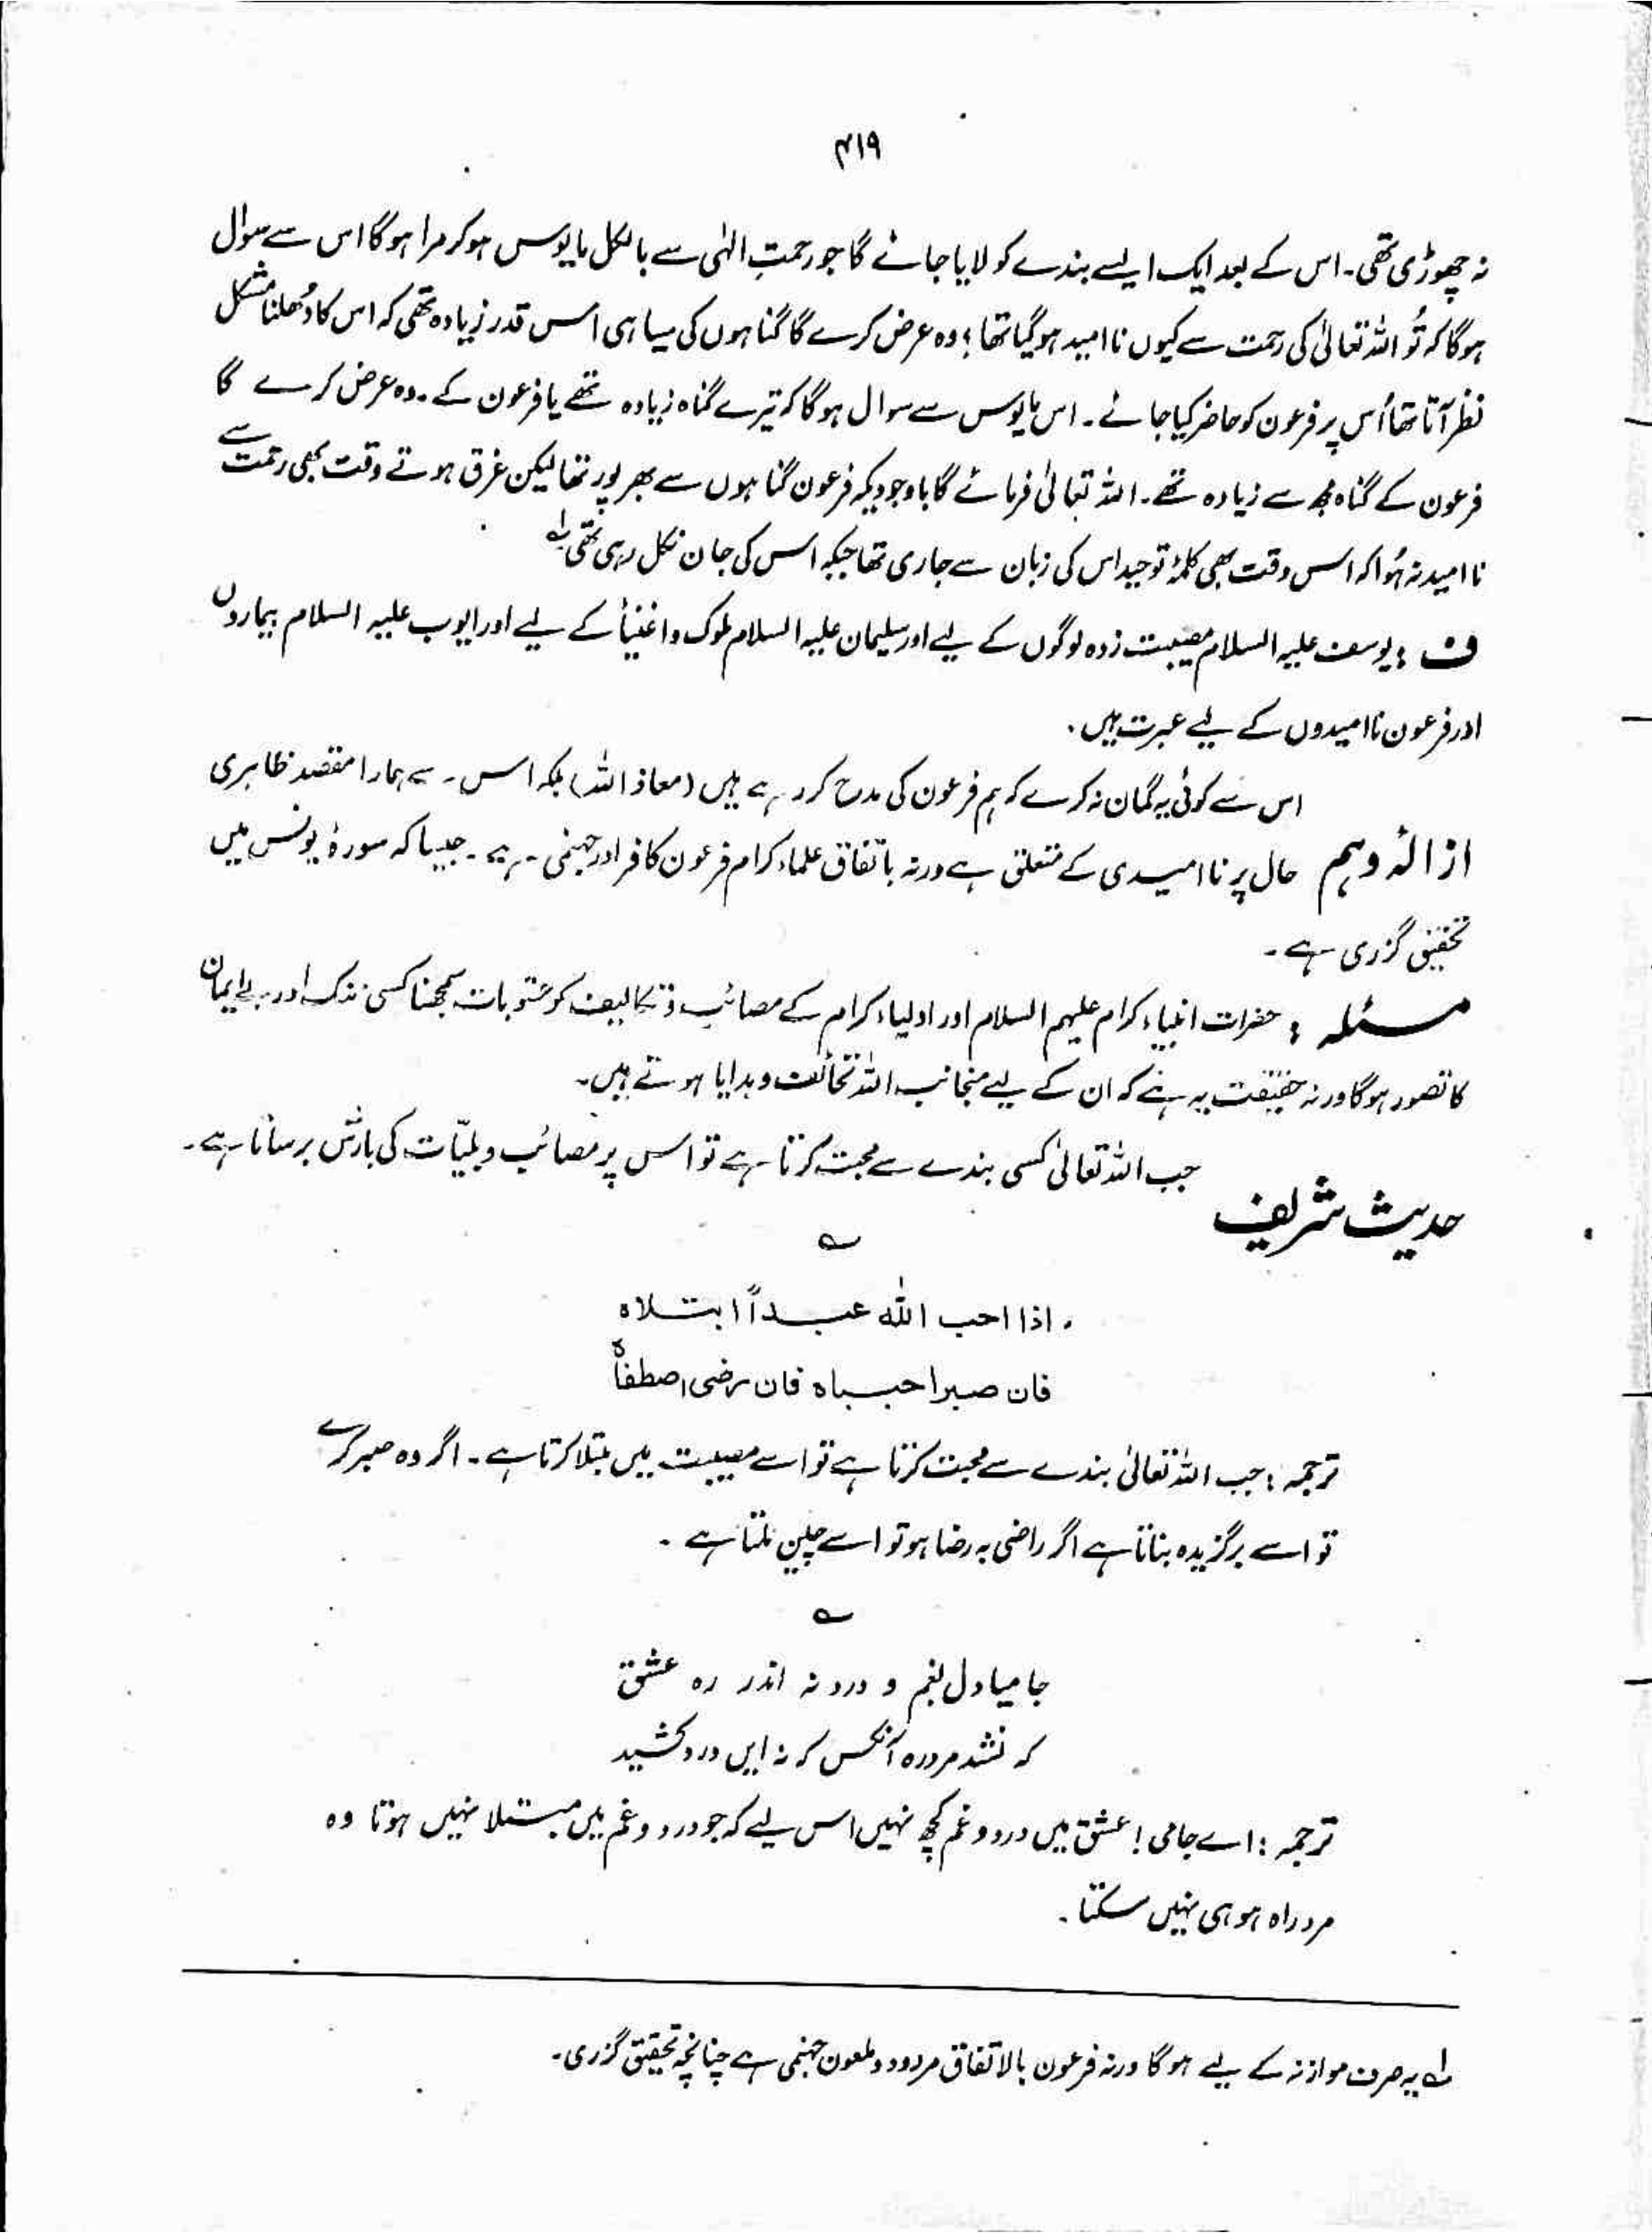 ۴۱۹
نہ چھوڑی تھی۔ اس کے بعد ایک ایسے بندے کو لایا جائے گا جو رحمتِ الٰہی سے بالکل مایوس ہو کر مرا ہوگا اس سے سوال
ہوگا کہ تُو اللہ تعالیٰ کی رحمت سے کیوں ناامید ہوگیا تھا؟ وہ عرض کرے گا گناہوں کی سیاہی اس قدر زیادہ تھی کہ اس کا دُھلنا مشکل
نظر آتا تھا اُس پر فرعون کو حاضر کیا جائے۔ اس مایوس سے سوال ہوگا کہ تیرے گناہ زیادہ تھے یا فرعون کے۔ وہ عرض کرے گا
فرعون کے گناہ مجھ سے زیادہ تھے۔ اللہ تعالیٰ فرمائے گا باوجودیکہ فرعون گناہوں سے بھرپور تھا لیکن غرق ہوتے وقت بھی رحمت سے
ناامید نہ ہُوا کہ اس وقت بھی کلمۂ توحید اس کی زبان سے جاری تھا جبکہ اس کی جان نکل رہی تھی لہ
ف : یوسف علیہ السلام مصیبت زدہ لوگوں کے لیے اور سلیمان علیہ السلام ملوک و اغنیأ کے لیے اور ایوب علیہ السلام بیماروں
اور فرعون ناامیدوں کے لیے عبرت ہیں۔
اس سے کوئی یہ گمان نہ کرے کہ ہم فرعون کی مدح کر رہے ہیں (معاذ اللہ) بلکہ اس سے ہمارا مقصد ظاہری
ازالۂ وہم حال پر ناامیدی کے متعلق ہے ورنہ باتفاق علماء کرام فرعون کافر اور جہنمی ہے۔ جیسا کہ سورۂ یونس میں
تحقیق گزری ہے۔
مسئلہ : حضرات انبیاء کرام علیہم السلام اور اولیاء کرام کے مصائب و تکالیف کو عقوبات سمجھنا کسی زندیک اور بے ایمان
کا تصور ہوگا ورنہ حقیقت یہ ہے کہ ان کے لیے منجانب اللہ تحائف و ہدایا ہوتے ہیں۔
جب اللہ تعالیٰ کسی بندے سے محبت کرتا ہے تو اس پر مصائب و بلیّات کی بارش برساتا ہے۔
حدیث شریف
؎
اذا احب اللہ عبداً ابتلاہ
فان صبر احباہ فان رضی اصطفاہ
ترجمہ : جب اللہ تعالیٰ بندے سے محبت کرتا ہے تو اسے مصیبت میں مبتلا کرتا ہے۔ اگر وہ صبر کرے
تو اسے برگزیدہ بناتا ہے اگر راضی بہ رضا ہو تو اسے چین ملتا ہے۔
؎
جامیا دل بغم و درد نہ اندر رہ عشق
کہ نشد مرد رہ آنکس کہ نہ ایں درد کشید
ترجمہ : اے جامی! عشق میں درد و غم کچھ نہیں اس لیے کہ جو درد و غم میں مبتلا نہیں ہوتا وہ
مرد راہ ہو ہی نہیں سکتا۔
لہ یہ صرف موازنہ کے لیے ہوگا ورنہ فرعون بالاتفاق مردود و ملعون جہنمی ہے چنانچہ تحقیق گزری۔